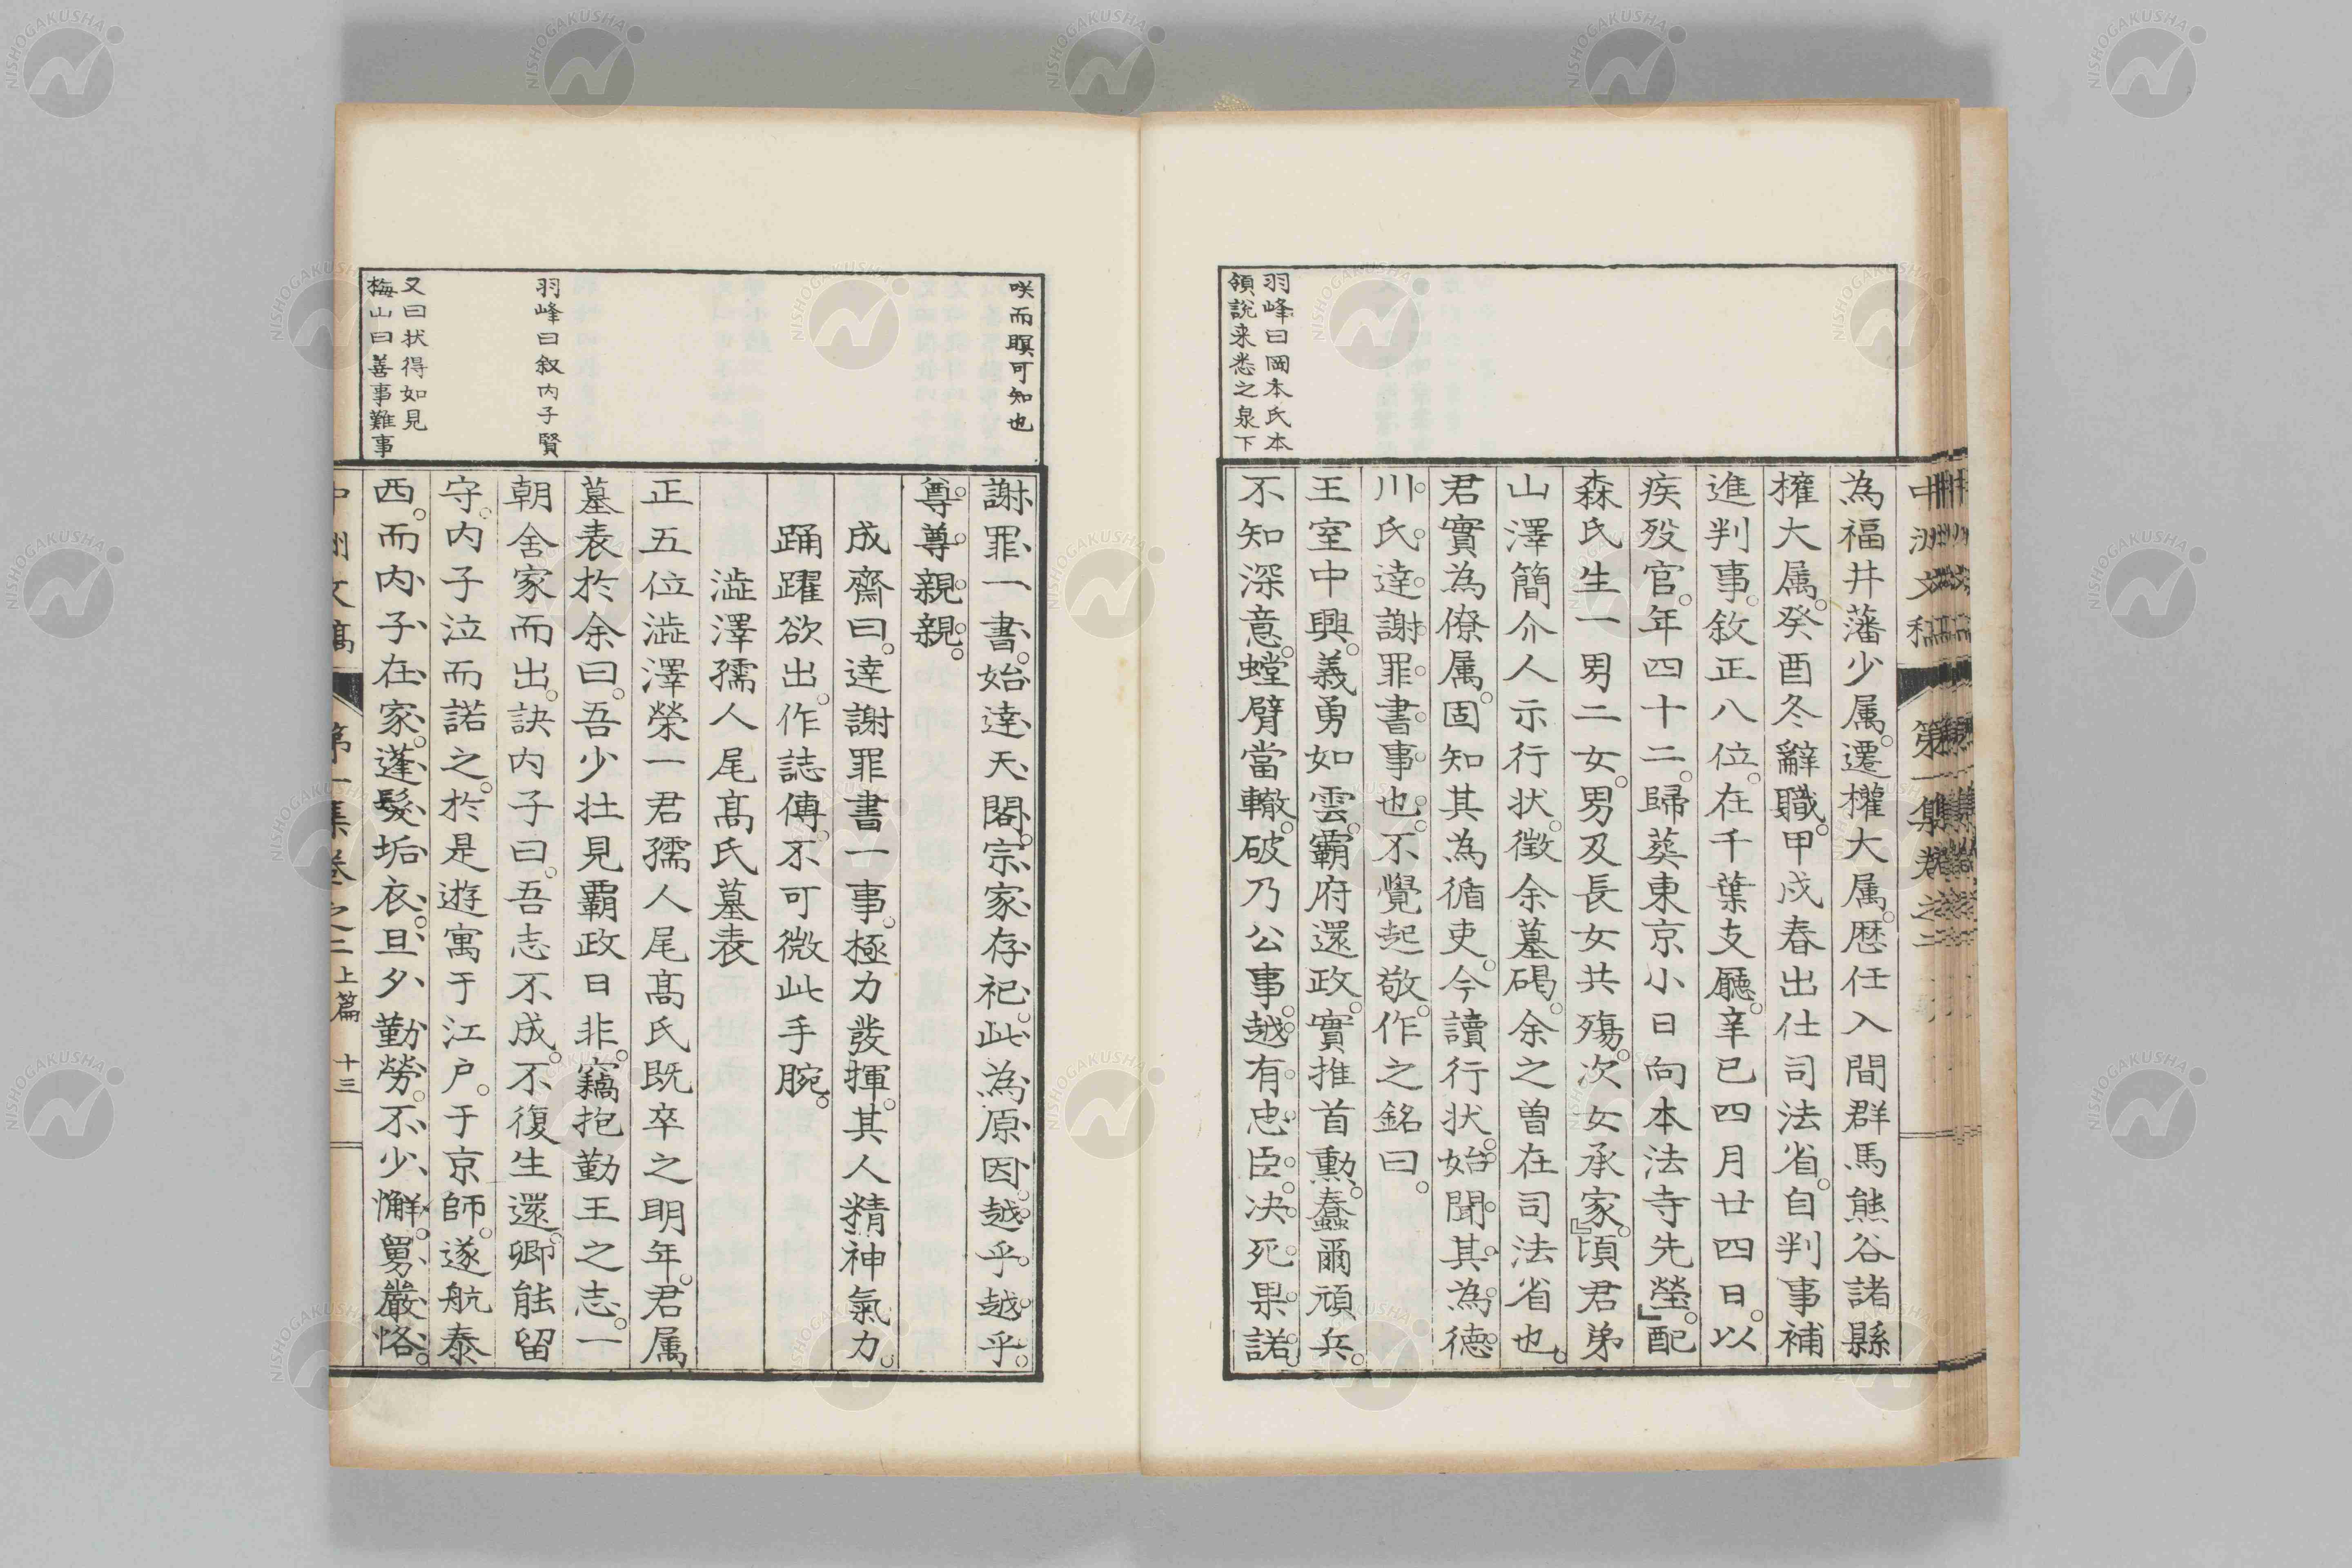 中洲文稿 第一集卷之二
羽峰曰岡本氏本
領説来悉之泉下
為福井藩少属。遷權大属。歴任入間群馬熊谷諸縣
擢大属。癸酉冬辭職。甲戌春出仕司法省。自判事補
進判事。敘正八位。在千葉支廳。辛巳四月廿四日。以
疾歿官。年四十二。歸葬東京小日向本法寺先塋。』配
森氏生一男二女。男及長女共殤。次女承家。』頃君弟
山澤簡介人示行状。徵余墓碣。余之曽在司法省也。
君實為僚属。固知其為循吏。今讀行状。始聞其為德
川氏達謝罪書事也。不覺起敬。作之銘曰。
王室中興。義勇如雲。霸府還政。實推首勳。蠢爾頑兵。
不知深意。螳臂當轍。破乃公事。越有忠臣。决死果諾。
咲而瞑可知也
羽峰曰叙内子賢
又曰状得如見
梅山曰善事難事
謝罪一書。始達天閽。宗家存祀。此為原因。越乎越乎。
尊尊親親。
成齋曰。達謝罪書一事。極力發揮。其人精神氣力。
踊躍欲出。作誌傳。不可微此手腕。
澁澤孺人尾髙氏墓表
正五位澁澤榮一君孺人尾髙氏既卒之明年。君属
墓表於余曰。吾少壯見覇政日非。竊抱勤王之志。一
朝舍家而出。訣内子曰。吾志不成。不復生還。卿能留
守。内子泣而諾之。於是遊寓于江户。于京師。遂航泰
西。而内子在家。蓬髮垢衣。旦夕勤勞。不少懈。舅嚴恪。
中洲文稿 第一集卷之二上篇 十三